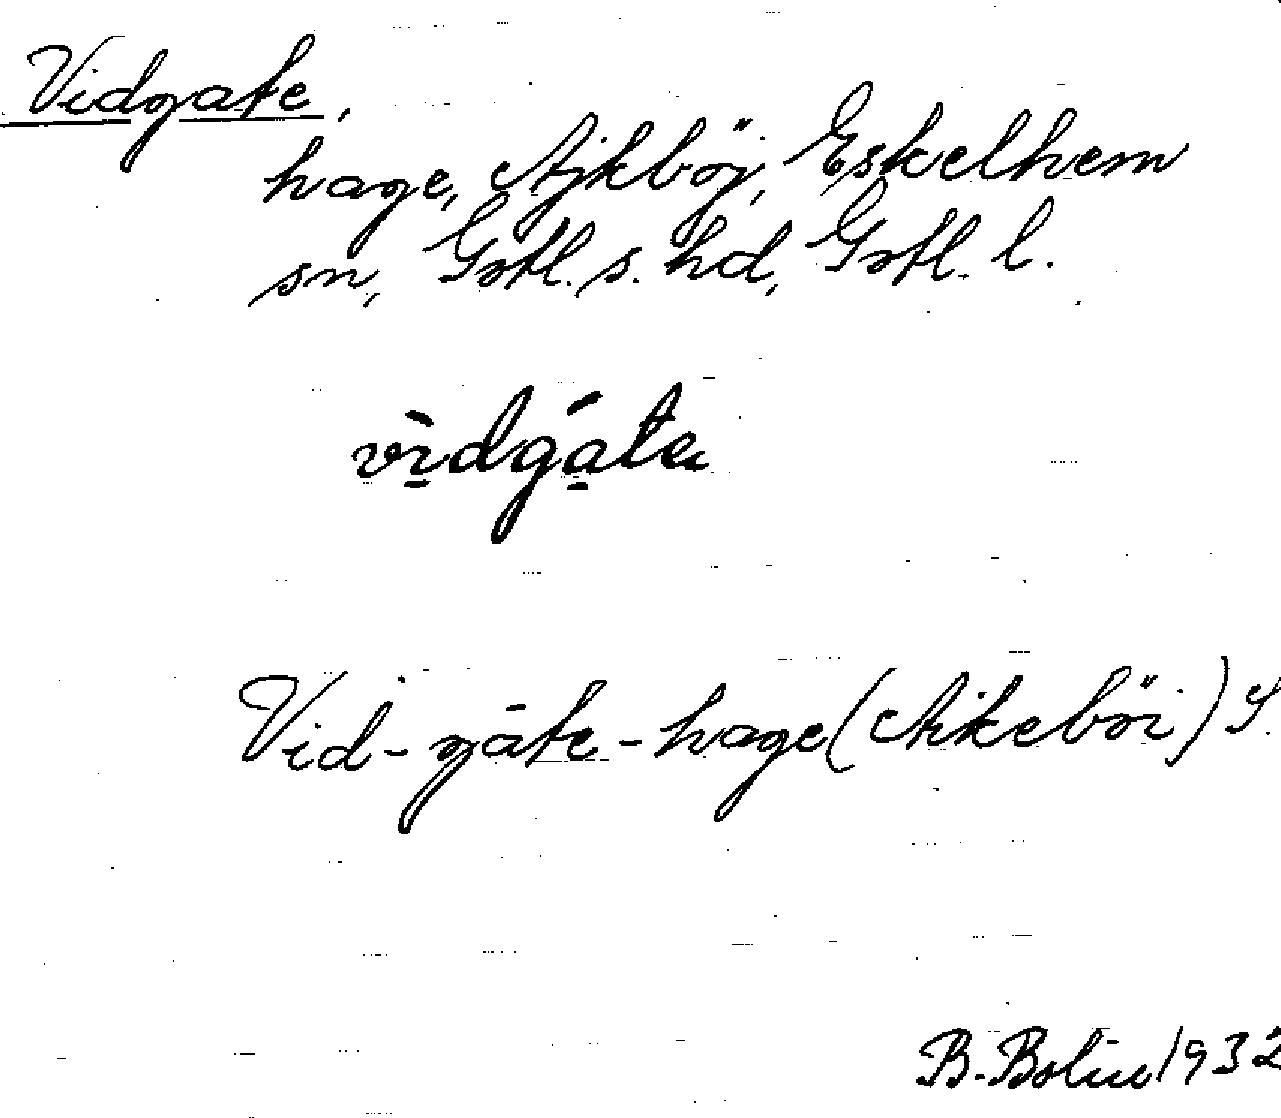 Vidgate,
hage, Ajkböj, Eskelhem
sn, Gotl. s. hd, Gotl. l.
vìdgáte
Vid-gāte-hage (Aikeböi) S.
B. Bolin 1932